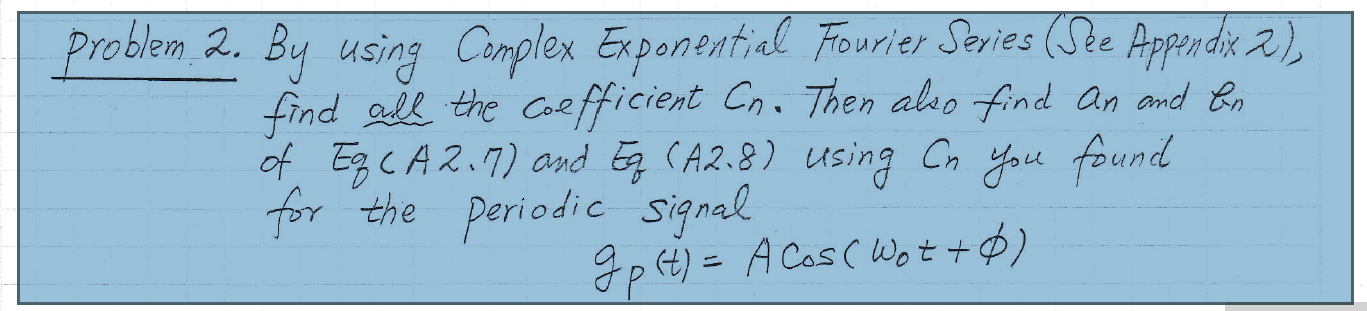 Problem 2. By using Complex Exponential Fourier Series (See Appendix 2),
find all the coefficient Cn. Then also find an and bn
of Eq (A2.7) and Eq (A2.8) using Cn you found
for the periodic signal
gp(t) = A Cos(ω₀t + ϕ)